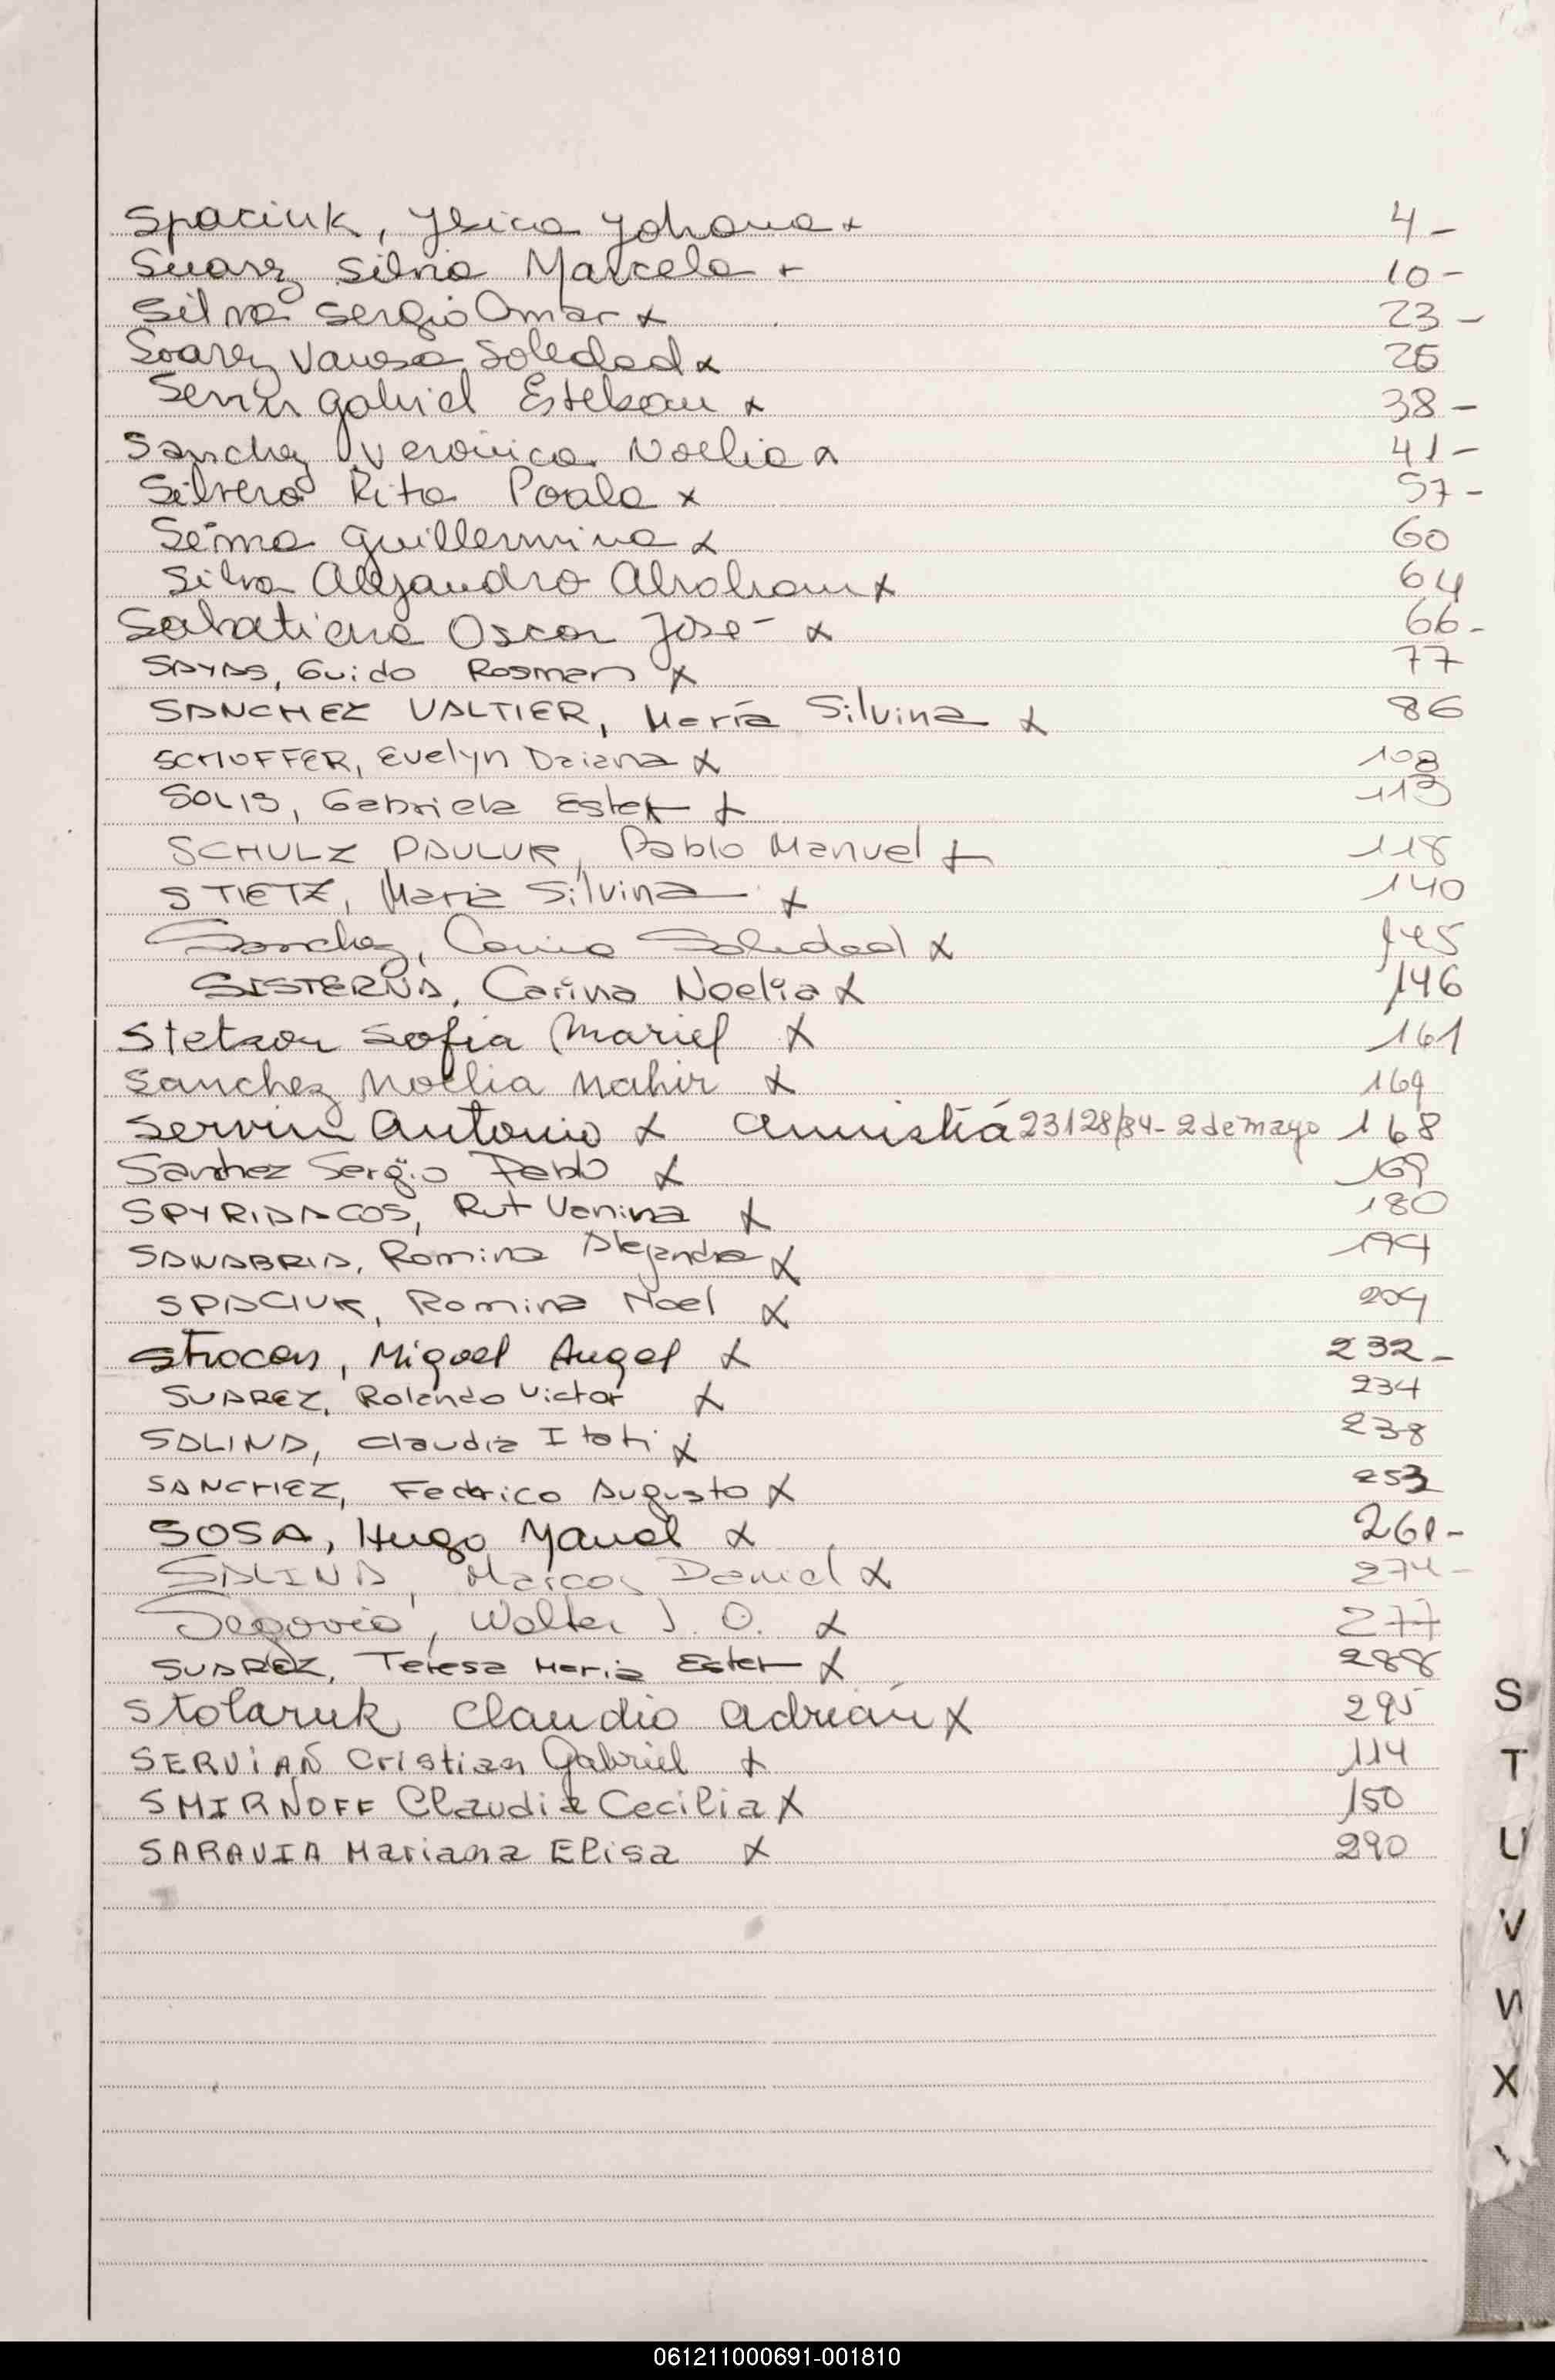 Spaciuk, Ysica Yohana x 4-
Suarez Silvia Marcela + 10-
Silva Sergio Omar x 23-
Soarez Vanesa Soledad x 25
Servin gabriel Esteban x 38-
Sanchez Veronica Noelia x 41-
Silvero Rita Paola x 57-
Sema guillermina x 60
Silva Alejandro Abraham x 64
Sabatiera Oscar José x 66-
SAYAS, Guido Rosman x 77
SANCHEZ VALTIER, María Silvina x 86
SCHOFFER, Evelyn Daiana x 108
SOLIS, Gabriela Ester x 113
SCHULZ PAULUK, Pablo Manuel x 118
STIETZ, Maria Silvina x 140
Sanchez, Soledad x 145
SISTERNA, Carina Noelia x 146
Stetson Sofia Mariel x 161
Sanchez Noelia Nahir x 169
Servin Antonio x amnistía 23128/84-2 de mayo 168
Sanchez Sergio Pablo x 169
SPYRIDACOS, Rut Vanina x 180
SANABRIA, Romina Alejandra x 194
SPACIUK, Romina Noel x 204
Strocen, Miguel Angel x 232-
SUAREZ, Rolando Victor x 234
SALINA, Claudia Itati x 238
SANCHEZ, Federico Augusto x 253
SOSA, Hugo Manuel x 261-
SALINA, Marcos Daniel x 274-
Segovia, Walter J. O. x 277
SUAREZ, Teresa Maria Ester x 288
Stolaruk Claudio adrián x 295
SERVIAN Cristian Gabriel x 114
SMIRNOFF Claudia Cecilia x 150
SARAVIA Mariana Elisa x 290
S
T
U
V
W
X
061211000691-001810